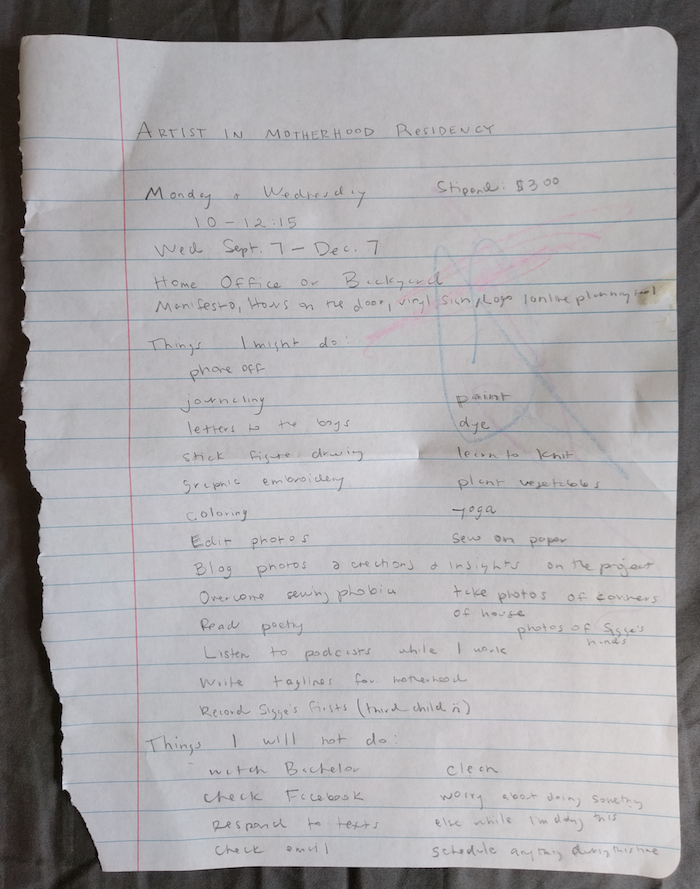 ARTIST IN MOTHERHOOD RESIDENCY
Monday & Wednesday Stipend: $300
10-12:15
Wed Sept. 7 - Dec. 7
Home Office or Backyard
Manifesto, Hours on the door, vinyl sign/Logo (online planning
Things I might do:
phone off
journaling paint
letters to the boys dye
stick figure drawing learn to knit
graphic embroidery plant vegetables
coloring yoga
Edit photos sew on paper
Blog photos & creations & insights on the project
Overcome sewing phobia take photos of corners
of house
Read poetry photos of Sigge's
hands
Listen to podcasts while I work
Write taglines for motherhood
Record Sigge's firsts (third child
Things I will not do:
watch Bachelor clean
check Facebook worry about doing something
Respond to texts else while I'm doing this
check email schedule anything during this time